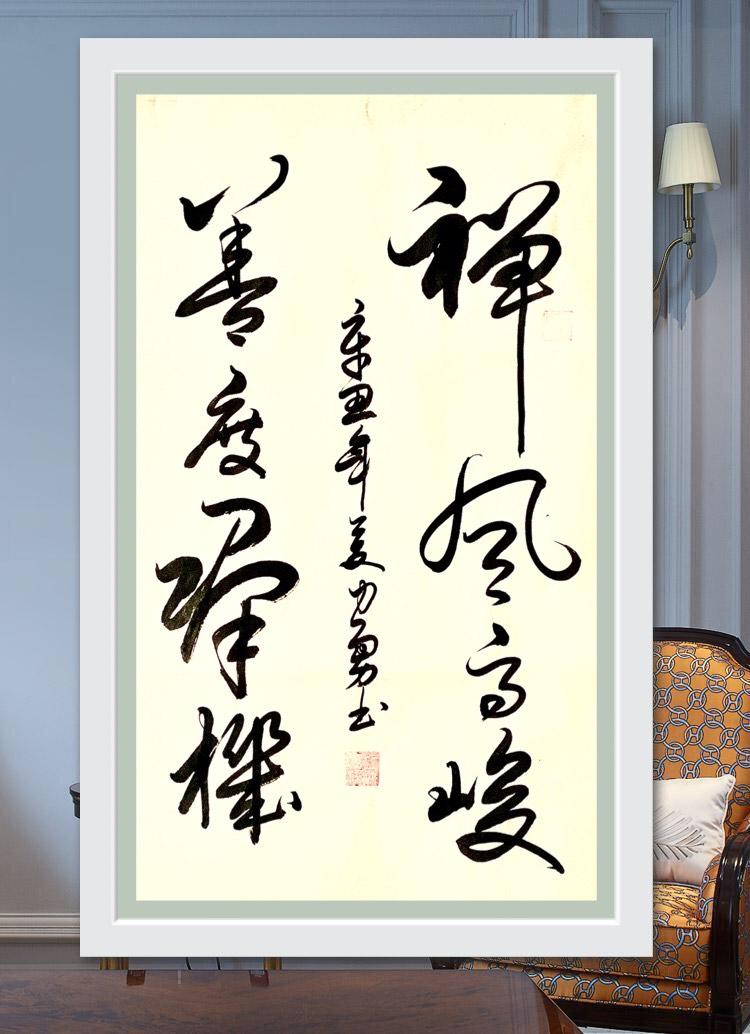 禅风高峻
善度群機
辛丑年姜力勇书